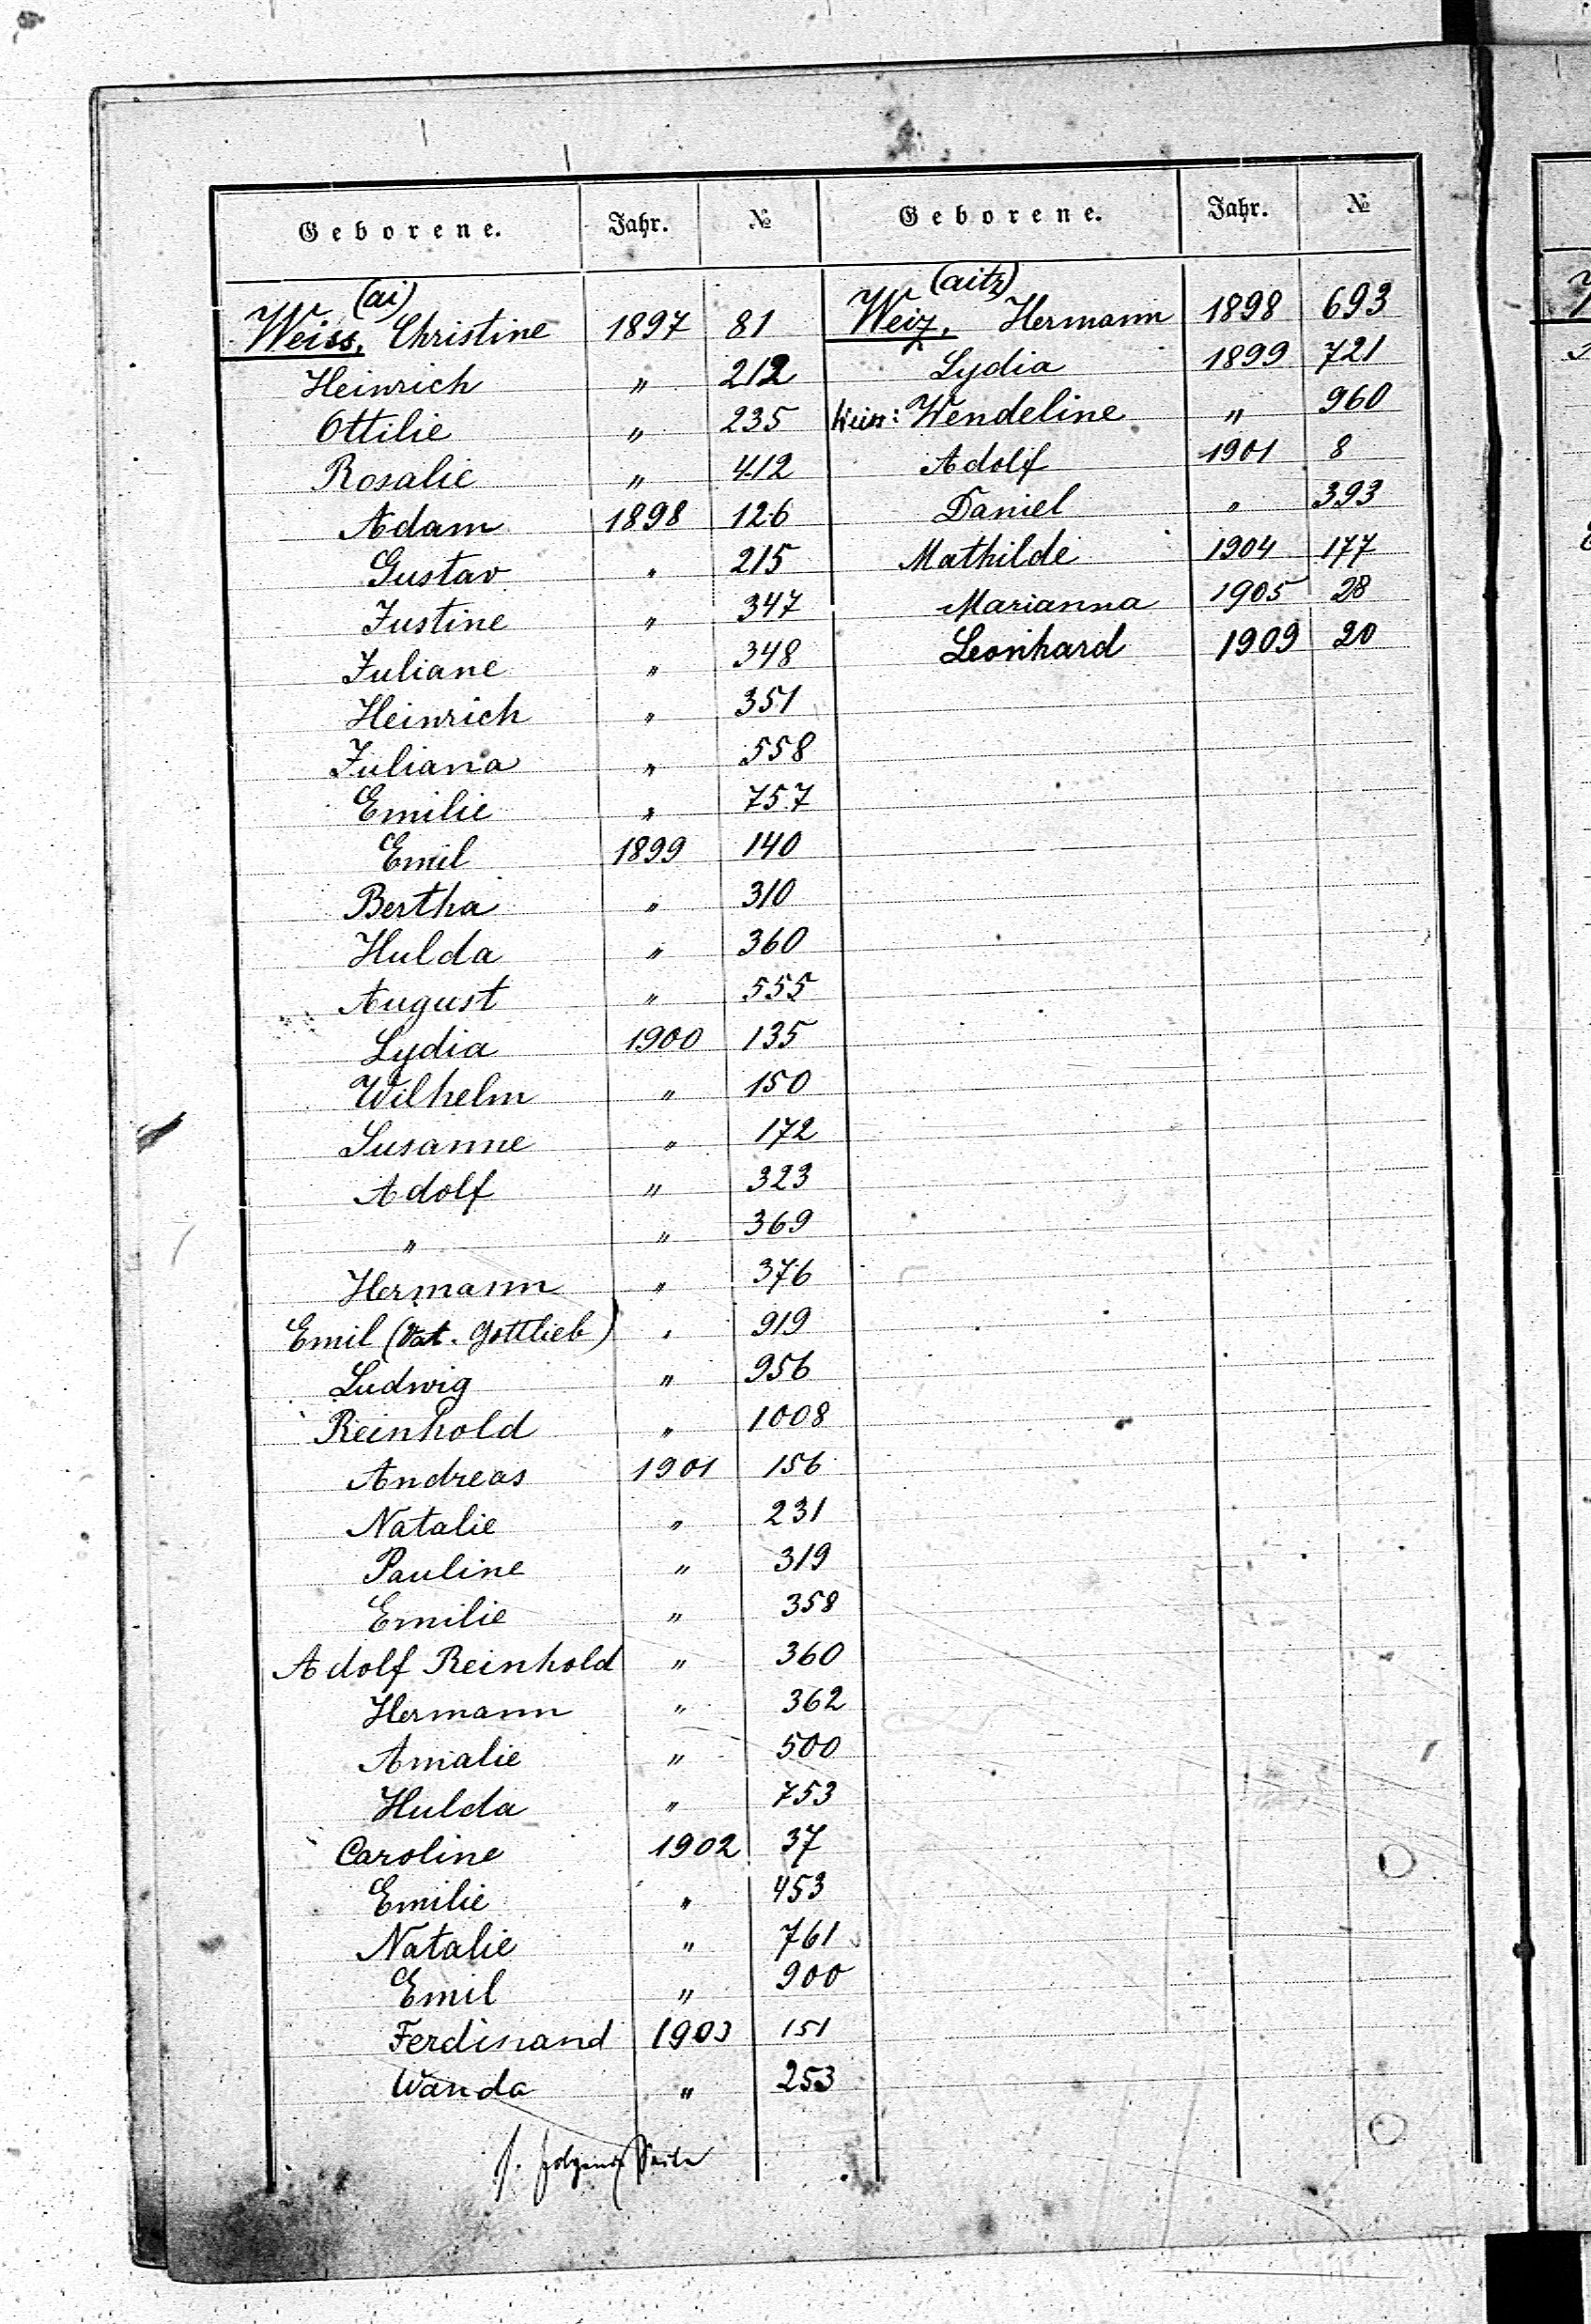 Geborene. Jahr. №
(ai)
Weiss, Christine 1897 81
Heinrich " 212
Ottilie " 235
Rosalie " 412
Adam 1898 126
Gustav " 215
Justine " 347
Juliane " 348
Heinrich " 351
Juliana " 558
Emilie " 757
Emil 1899 140
Bertha " 310
Hulda " 360
August " 555
Lydia 1900 135
Wilhelm " 150
Susanne " 172
Adolf " 323
" " 369
Hermann " 376
Emil (Vat. Gottlieb) " 919
Ludwig " 956
Reinhold " 1008
Andreas 1901 156
Natalie " 231
Pauline " 319
Emilie " 358
Adolf Reinhold " 360
Hermann " 362
Amalie " 500
Hulda " 753
Caroline 1902 37
Emilie " 453
Natalie " 761
Emil " 900
Ferdinand 1903 151
Wanda " 253
s. folgende Seite
Geborene. Jahr. №
(aitz)
Weiz, Hermann 1898 693
Lydia 1899 721
Weiss: Wendeline " 960
Adolf 1901 8
Daniel " 393
Mathilde 1904 177
Marianna 1905 28
Leonhard 1909 20